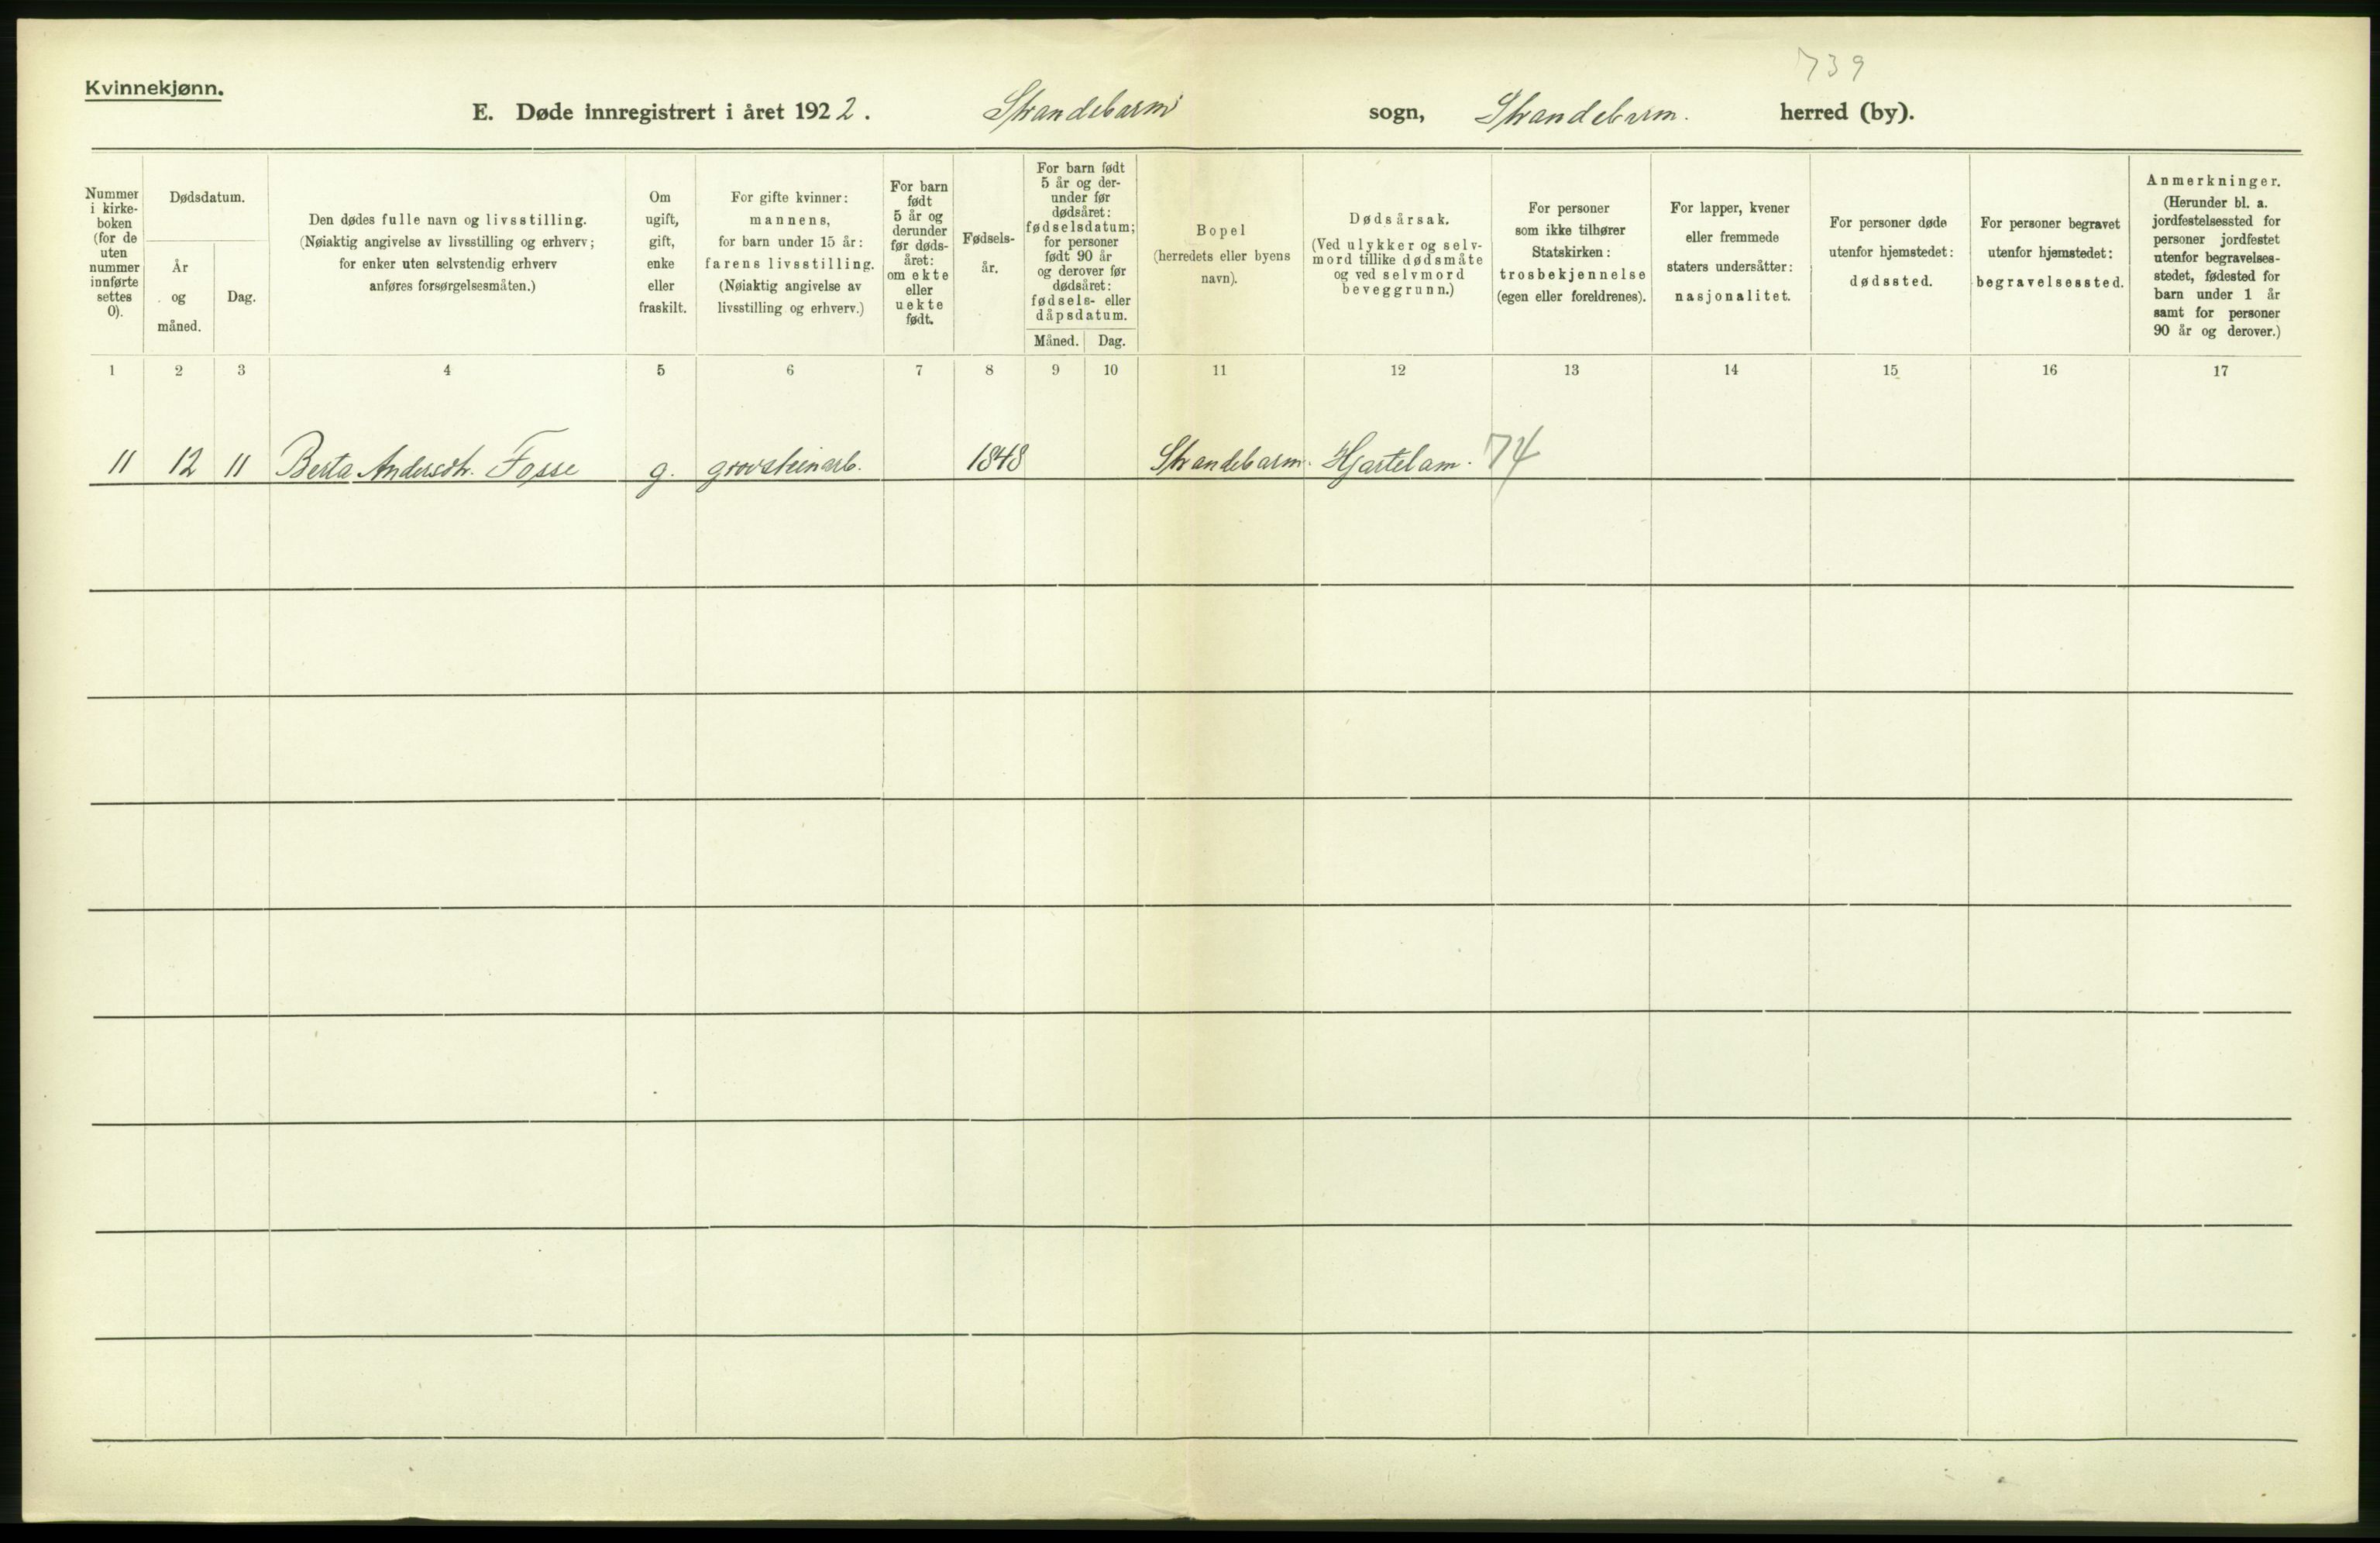 739
Kvinnekjønn.
E. Døde innregistrert i året 1922. Strandebarm sogn, Strandebarm. herred (by).
Nummer
i kirke-
boken
(for de
uten
nummer
innførte
settes
0).
Dødsdatum.
År
og
måned.
Dag.
Den dødes fulle navn og livsstilling.
(Nøiaktig angivelse av livsstilling og erhverv;
for enker uten selvstendig erhverv
anføres forsørgelsesmåten.)
Om
ugift,
gift,
enke
eller
fraskilt.
For gifte kvinner:
mannens,
for barn under 15 år:
farens livsstilling.
(Nøiaktig angivelse av
livsstilling og erhverv.)
For barn
født
5 år og
derunder
før døds-
året:
om ekte
eller
uekte
født.
Fødsels-
år.
For barn født
5 år og der-
under før
dødsåret:
fødselsdatum;
for personer
født 90 år
og derover før
dødsåret:
fødsels- eller
dåpsdatum.
Måned. Dag.
Bopel
(herredets eller byens
navn).
Dødsårsak.
(Ved ulykker og selv-
mord tillike dødsmåte
og ved selvmord
beveggrunn.)
For personer
som ikke tilhører
Statskirken:
trosbekjennelse
(egen eller foreldrenes).
For lapper, kvener
eller fremmede
staters undersåtter:
nasjonalitet.
For personer døde
utenfor hjemstedet:
dødssted.
For personer begravet
utenfor hjemstedet:
begravelsessted.
Anmerkninger.
(Herunder bl. a.
jordfestelsessted for
personer jordfestet
utenfor begravelses-
stedet, fødested for
barn under 1 år
samt for personer
90 år og derover.)
1 2 3 4 5 6 7 8 9 10 11 12 13 14 15 16 17
11 12 11 Berta Andersdtr. Fosse g. grovsteinarb. 1848 Strandebarm. Hjartelam. 74